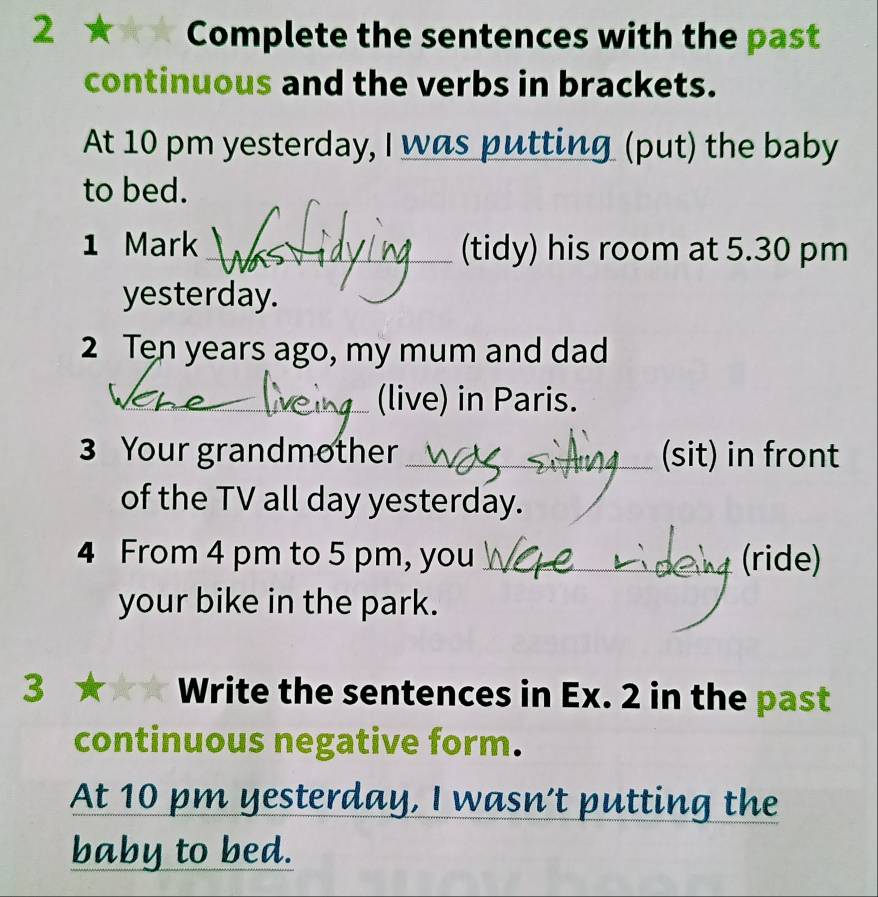 2 ★★★ Complete the sentences with the past
continuous and the verbs in brackets.
At 10 pm yesterday, I was putting (put) the baby
to bed.
1 Mark Was tidying (tidy) his room at 5.30 pm
yesterday.
2 Ten years ago, my mum and dad
Were liveing (live) in Paris.
3 Your grandmother was sitting (sit) in front
of the TV all day yesterday.
4 From 4 pm to 5 pm, you Were rideing (ride)
your bike in the park.
3 ★★★ Write the sentences in Ex. 2 in the past
continuous negative form.
At 10 pm yesterday, I wasn't putting the
baby to bed.